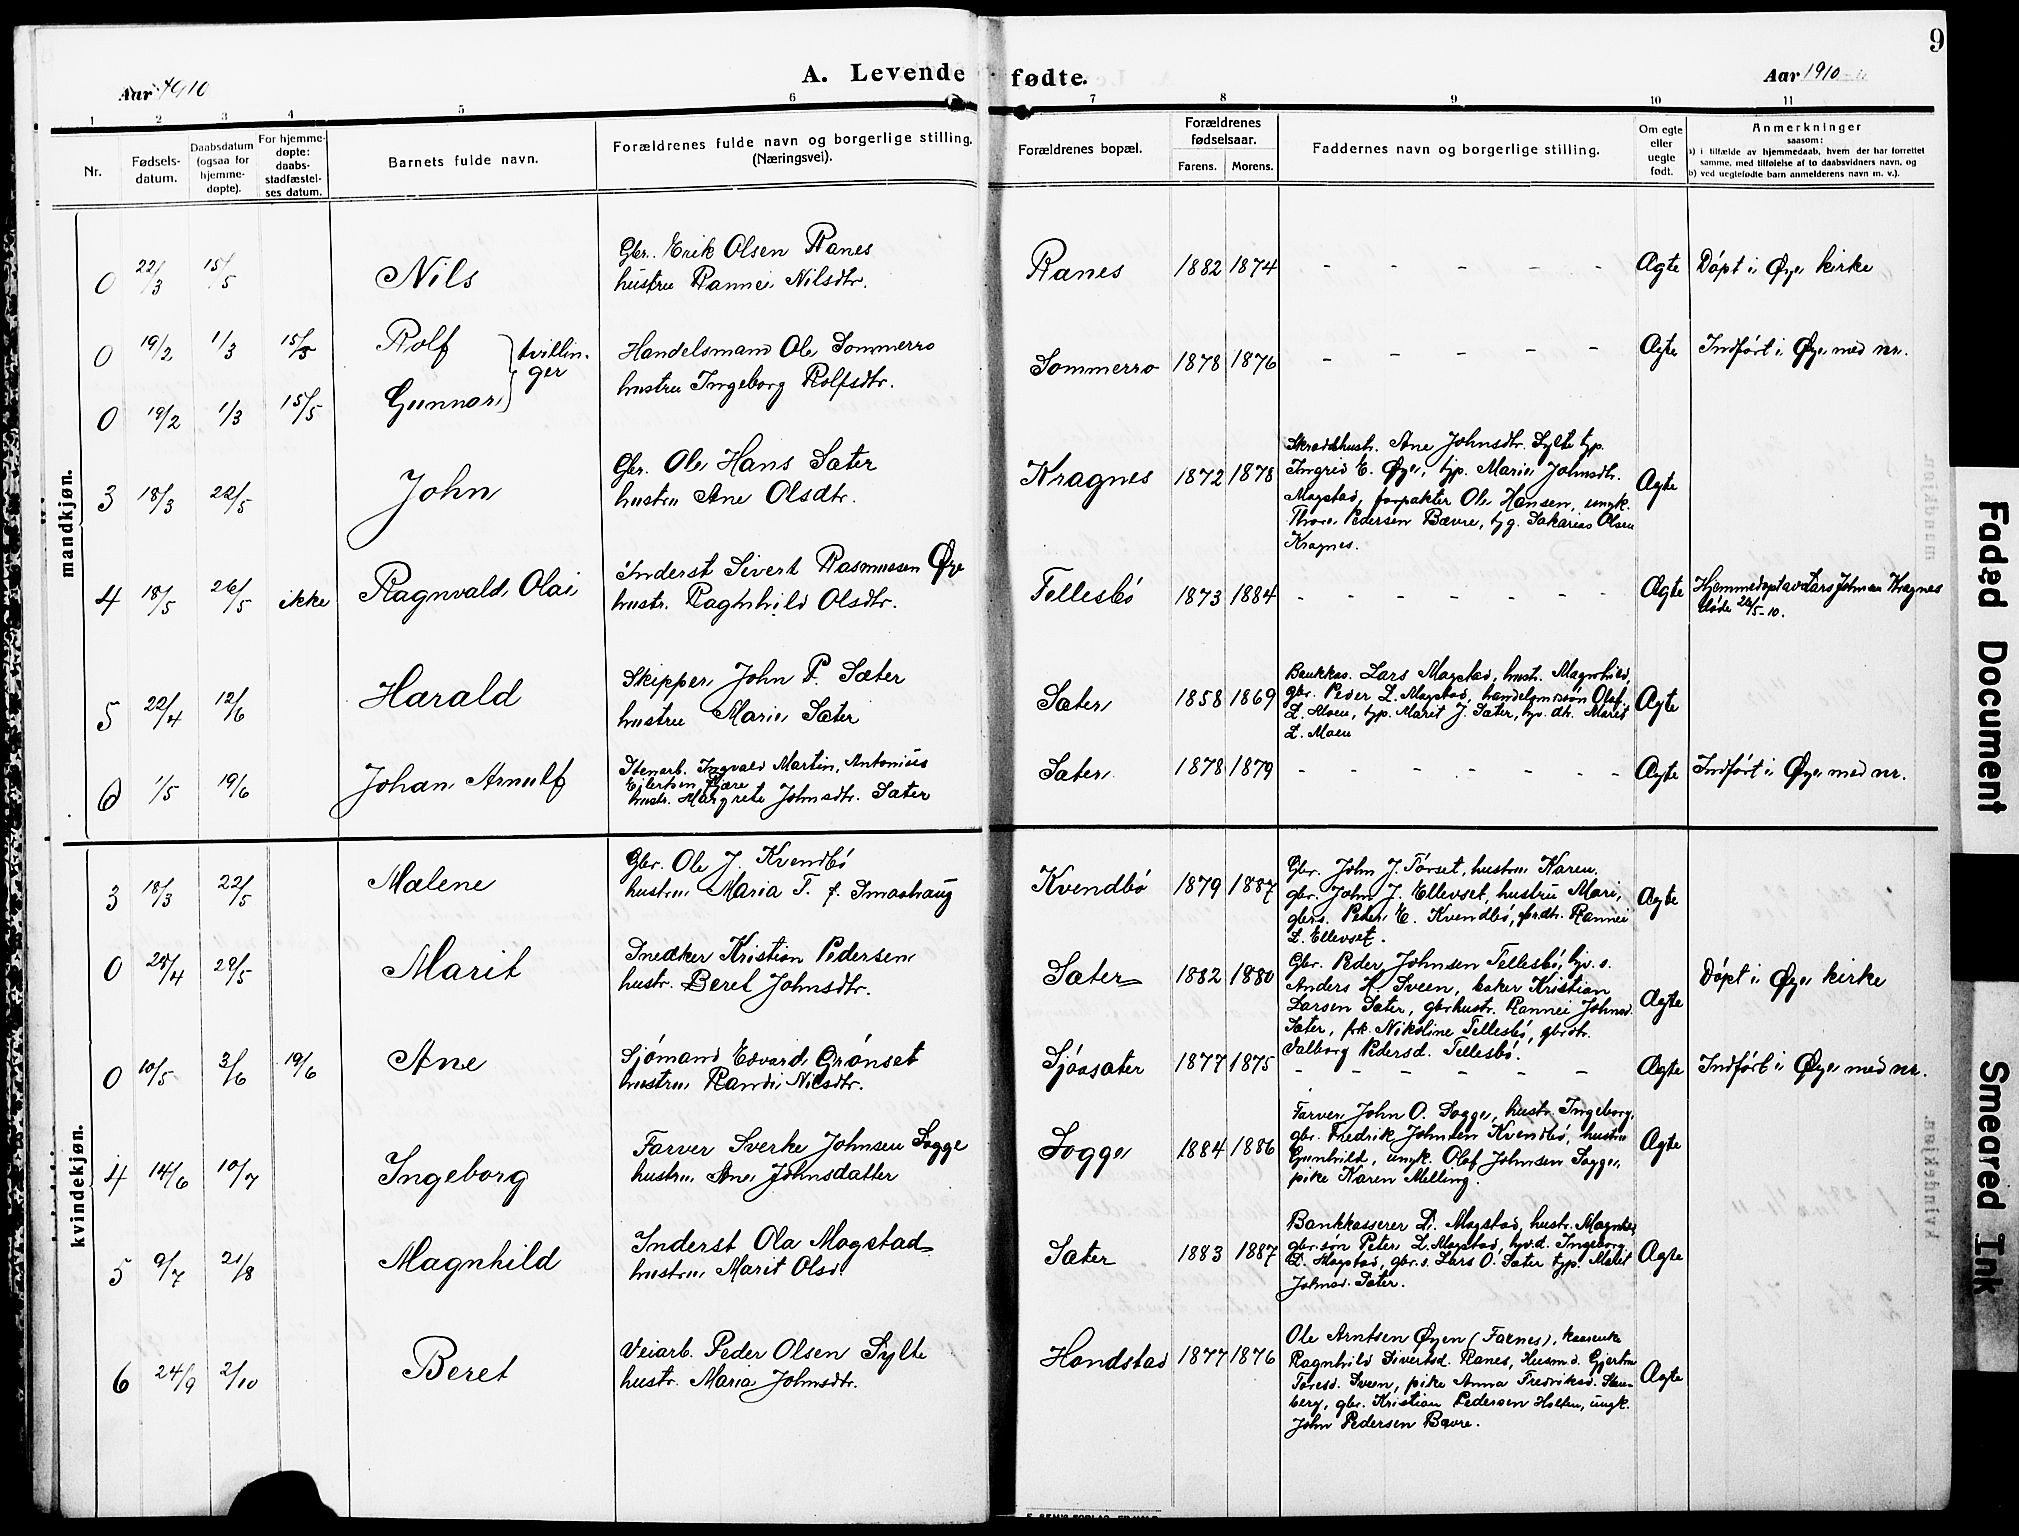 9
A. Levende fødte.
Aar 1910
Aar 1910
1 2 3 4 5 6 7 8 9 10 11
Nr.
Fødsels-
datum.
Daabsdatum
(ogsaa for
hjemme-
døpte).
For hjemme-
døpte:
daabs-
stadfæstel-
ses datum.
Barnets fulde navn.
Forældrenes fulde navn og borgerlige stilling.
(Næringsvei).
Forældrenes bopæl.
Forældrenes
fødselsaar.
Farens. Morens.
Faddernes navn og borgerlige stilling.
Om egte
eller
uegte
født.
Anmerkninger
saasom:
a) i tilfælde av hjemmedaab, hvem der har forrettet
samme, med tilføielse af to daabsvidners navn, og
b) ved uegtefødte barn anmelderens navn m. v.).
mandkjøn.
0 22/3 15/5 Nils
Gbr. Erik Olsen Ranes
hustru Rannei Nilsdtr.
Ranes 1882 1874 - - - - - - Ægte Døpt i Øye kirke
0 19/2 1/3 15/5 Rolf
0 19/2 1/3 15/5 Gunnar
tvillin-
ger
Handelsmand Ole Sommerro
hustru Ingeborg Rolfsdtr.
Sommerro 1878 1876 - - - - - - Ægte Indført i Øye med nr.
3 18/3 22/5 John
Gbr. Ole Hans Sæter
hustru Ane Olsdtr.
Kragnes 1872 1878
Skrædhustr. Ane Johnsdtr. Sylte typ.
Ingrid E. Øye, typ. Marie Johnsdtr.
Magstad, forpakter Ole Hansen, ungk.
Thore Pedersen Bævre, tyg. Sakarias Olsen
Kragnes.
Ægte
4 18/5 26/5 ikke Ragnvald Olai
Inderst Sivert Rasmussen Øye
hustr. Raghnhild Olsdtr.
Tellesbø 1873 1884 - - - - - - Ægte
Hjemmedøpt av Lars Johnsen Kragnes
døde 26/5-10.
5 22/4 12/6 Harald
Skipper John P. Sæter
hustru Marie Sæter
Sæter 1858 1869
Bankkas. Lars Magstad, hustr. Magnhild,
gbr. Peder L. Magstad, handelsmdsøn Olaf
L. Moen, typ. Marit J. Sæter, tyv. dtr. Marit
L. Moen
Ægte
6 1/5 19/6 Johan Arnulf
Stenarb. Ingvald Martin Antonius
Ejlertsen
hustr. Margrete Johnsdtr. Sæter
Sæter 1878 1879 - - - - - - Ægte Indført i Øye med nr.
kvindekjøn.
3 18/3 22/5 Malene
Gbr. Ole J. Kvendbø
hustru Maria T. f. Smaahaug
Kvendbø 1879 1887
Gbr. John J. Tørset, hustru Karen,
gbr. John J. Ellevset, hustru Mari,
gbrs. Peder E. Kvendbø, gbrdtr. Rannei
L. Ellevset.
Ægte
0 29/5 Marit
Snedker Kristian Pedersen
hustr. Beret Johnsdtr.
Sæter 1882 1880
Gbr. Peder Johnsen Tellesbø, tyv. s.
Anders A. Sveen, baker Kristian
Larsen Sæter, gbrhustr. Rannei Johnsd.
Sæter, frk. Nikoline Tellesbø, gbrdtr.
Valborg Pedersd. Tellesbø.
Ægte Døpt i Øye kirke
0 10/5 3/6 19/6 Ane
Sjømand Edvard Grønset
hustru Randi Nilsdtr.
Sjøasæter 1877 1875 - - - - - - Ægte Indført i Øye med nr.
4 14/6 10/7 Ingeborg
Farver Sverke Johnsen Sogge
hustru Ane Johnsdatter
Sogge 1884 1886
Farver John O. Sogge, hustr. Ingeborg,
gbr. Fredrik Johnsen Kvendbø, hustru
Gunhild, ungk. Olaf Johnsen Sogge,
pike Karen Melling.
Ægte
5 9/7 21/8 Magnhild
Inderst Ola Magstad
hustru Marit Olsd.
Sæter 1883 1887
Bankkasserer L. Magstad, hustr. Magnhild,
gbr.søn Peter L. Magstad, tyv.d. Ingeborg
L. Magstad, gbr.s. Lars O. Sæter typ. Marit
Johnsd. Sæter.
Ægte
6 24/9 2/10 Beret
Veiarb. Peder Olsen Sylte
hustr. Maria Johnsdtr.
Handstad 1877 1876
Ole Arntsen Øyen (Farnes),
Ragnhild Sivertsd. Ranes, Husmd. Gjertru
Toresd. Sveen, pike Anna Fredriksd. Sten-
berg, gbr. Kristian Pedersen Holten, ungk.
John Pedersen Bævre.
Ægte
Faded Document
Smeared Ink